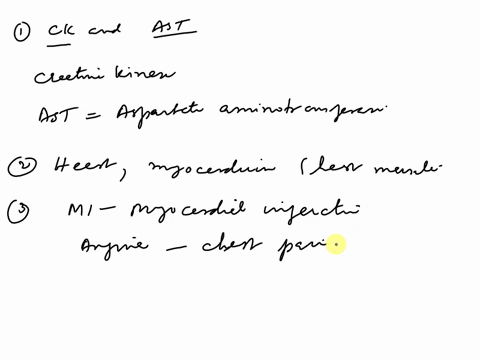 ① CK and AST
Creatine kinase
AST = Aspartate aminotransferase.
② Heart, myocardium (heart muscle.
③ MI - Myocardial infarction
Angina - chest pain.